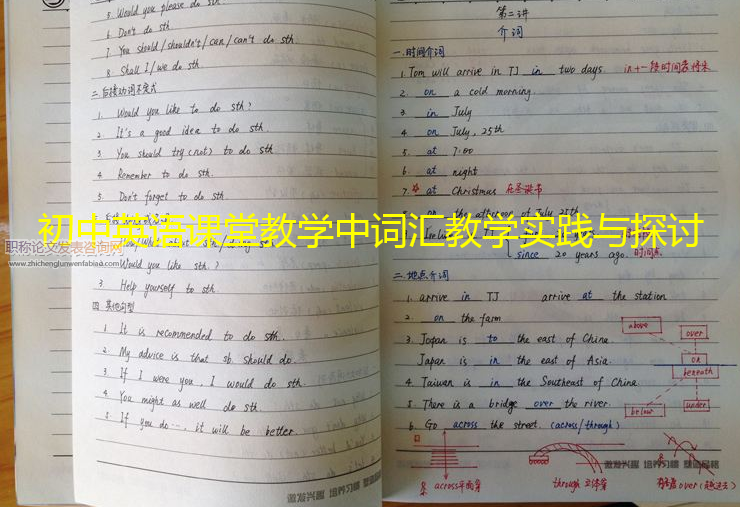 5. Would you please do sth.
6. Don't do sth
7. You should/shouldn't/can/can't do sth.
8. Shall I/we do sth.
二.后接动词不定式
1. Would you like to do sth?
2. It's a good idea to do sth.
3. You should try (not) to do sth
4. Remember to do sth.
5. Don't forget to do sth
初中英语课堂教学中词汇教学实践与探讨
职称论文发表咨询网
www.zhichenglunwenfabiao.com
Would you like sth.?
3. Help yourself to sth
四 其他句型
1. It is recommended to do sth.
2. My advice is that sb. should do.
3. If I were you, I would do sth.
4. You might as well do sth
5. If you do…, it will be better.
激发兴趣 培养习惯
第二讲
介词
一.时间介词
1. Tom will arrive in TJ in two days. in+一段时间表将来
2. on a cold morning.
3. in July
4. on July, 25th
5. at 7:00
6. at night
7. at Christmas 在圣诞节
on the afternoon of July 25th
since 20 years ago. 时间点
二.地点介词
1. arrive in TJ arrive at the station
2. on the farm
3. Japan is to the east of China
Japan is in the east of Asia.
4. Taiwan is in the Southeast of China.
5. There is a bridge over the river.
6. Go across the street. (across/through)
above
over
on
beneath
below
under
across平面穿
through 立体穿
over
激发兴趣 培养习惯